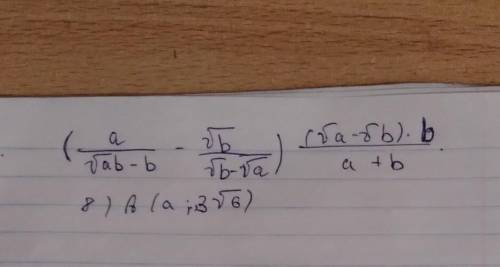 ( a/(√ab - b) - √b/(√b-√a) ) (√a-√b) · b/(a + b) .
8) A (a ; 3√6)